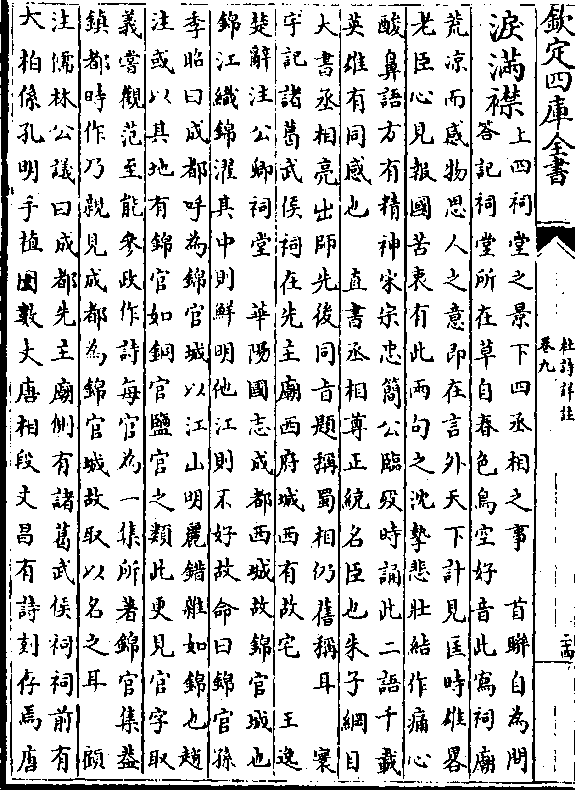 欽定四庫全書
杜詩詳註
卷九
淚滿襟
上四祠堂之景下四丞相之事　首聯自為問
答記祠堂所在草自春色鳥空好音此寫祠廟
荒凉而感物思人之意即在言外天下計見匡時雄畧
老臣心見報國苦衷有此兩句之沈摯悲壯結作痛心
酸鼻語方有精神宋宗忠簡公臨歿時誦此二語千載
英雄有同感也　直書丞相尊正統名臣也朱子綱目
大書丞相亮出師先後同㫖題稱蜀相仍舊稱耳　寰
宇記諸葛武侯祠在先主廟西府城西有故宅　王逸
楚辭注公卿祠堂　華陽國志成都西城故錦官城也
錦江織錦濯其中則鮮明他江則不好故命曰錦官孫
季昭曰成都呼為錦官城以江山明麗錯雜如錦也趙
注或以其地有錦官如銅官鹽官之類此更見官字取
義嘗觀范至能參政作詩每官為一集所著錦官集葢
鎮都時作乃親見成都為錦官城故取以名之耳　顧
注儒林公議曰成都先主廟側有諸葛武侯祠祠前有
大柏係孔明手植圍數丈唐相段文昌有詩刻存焉唐